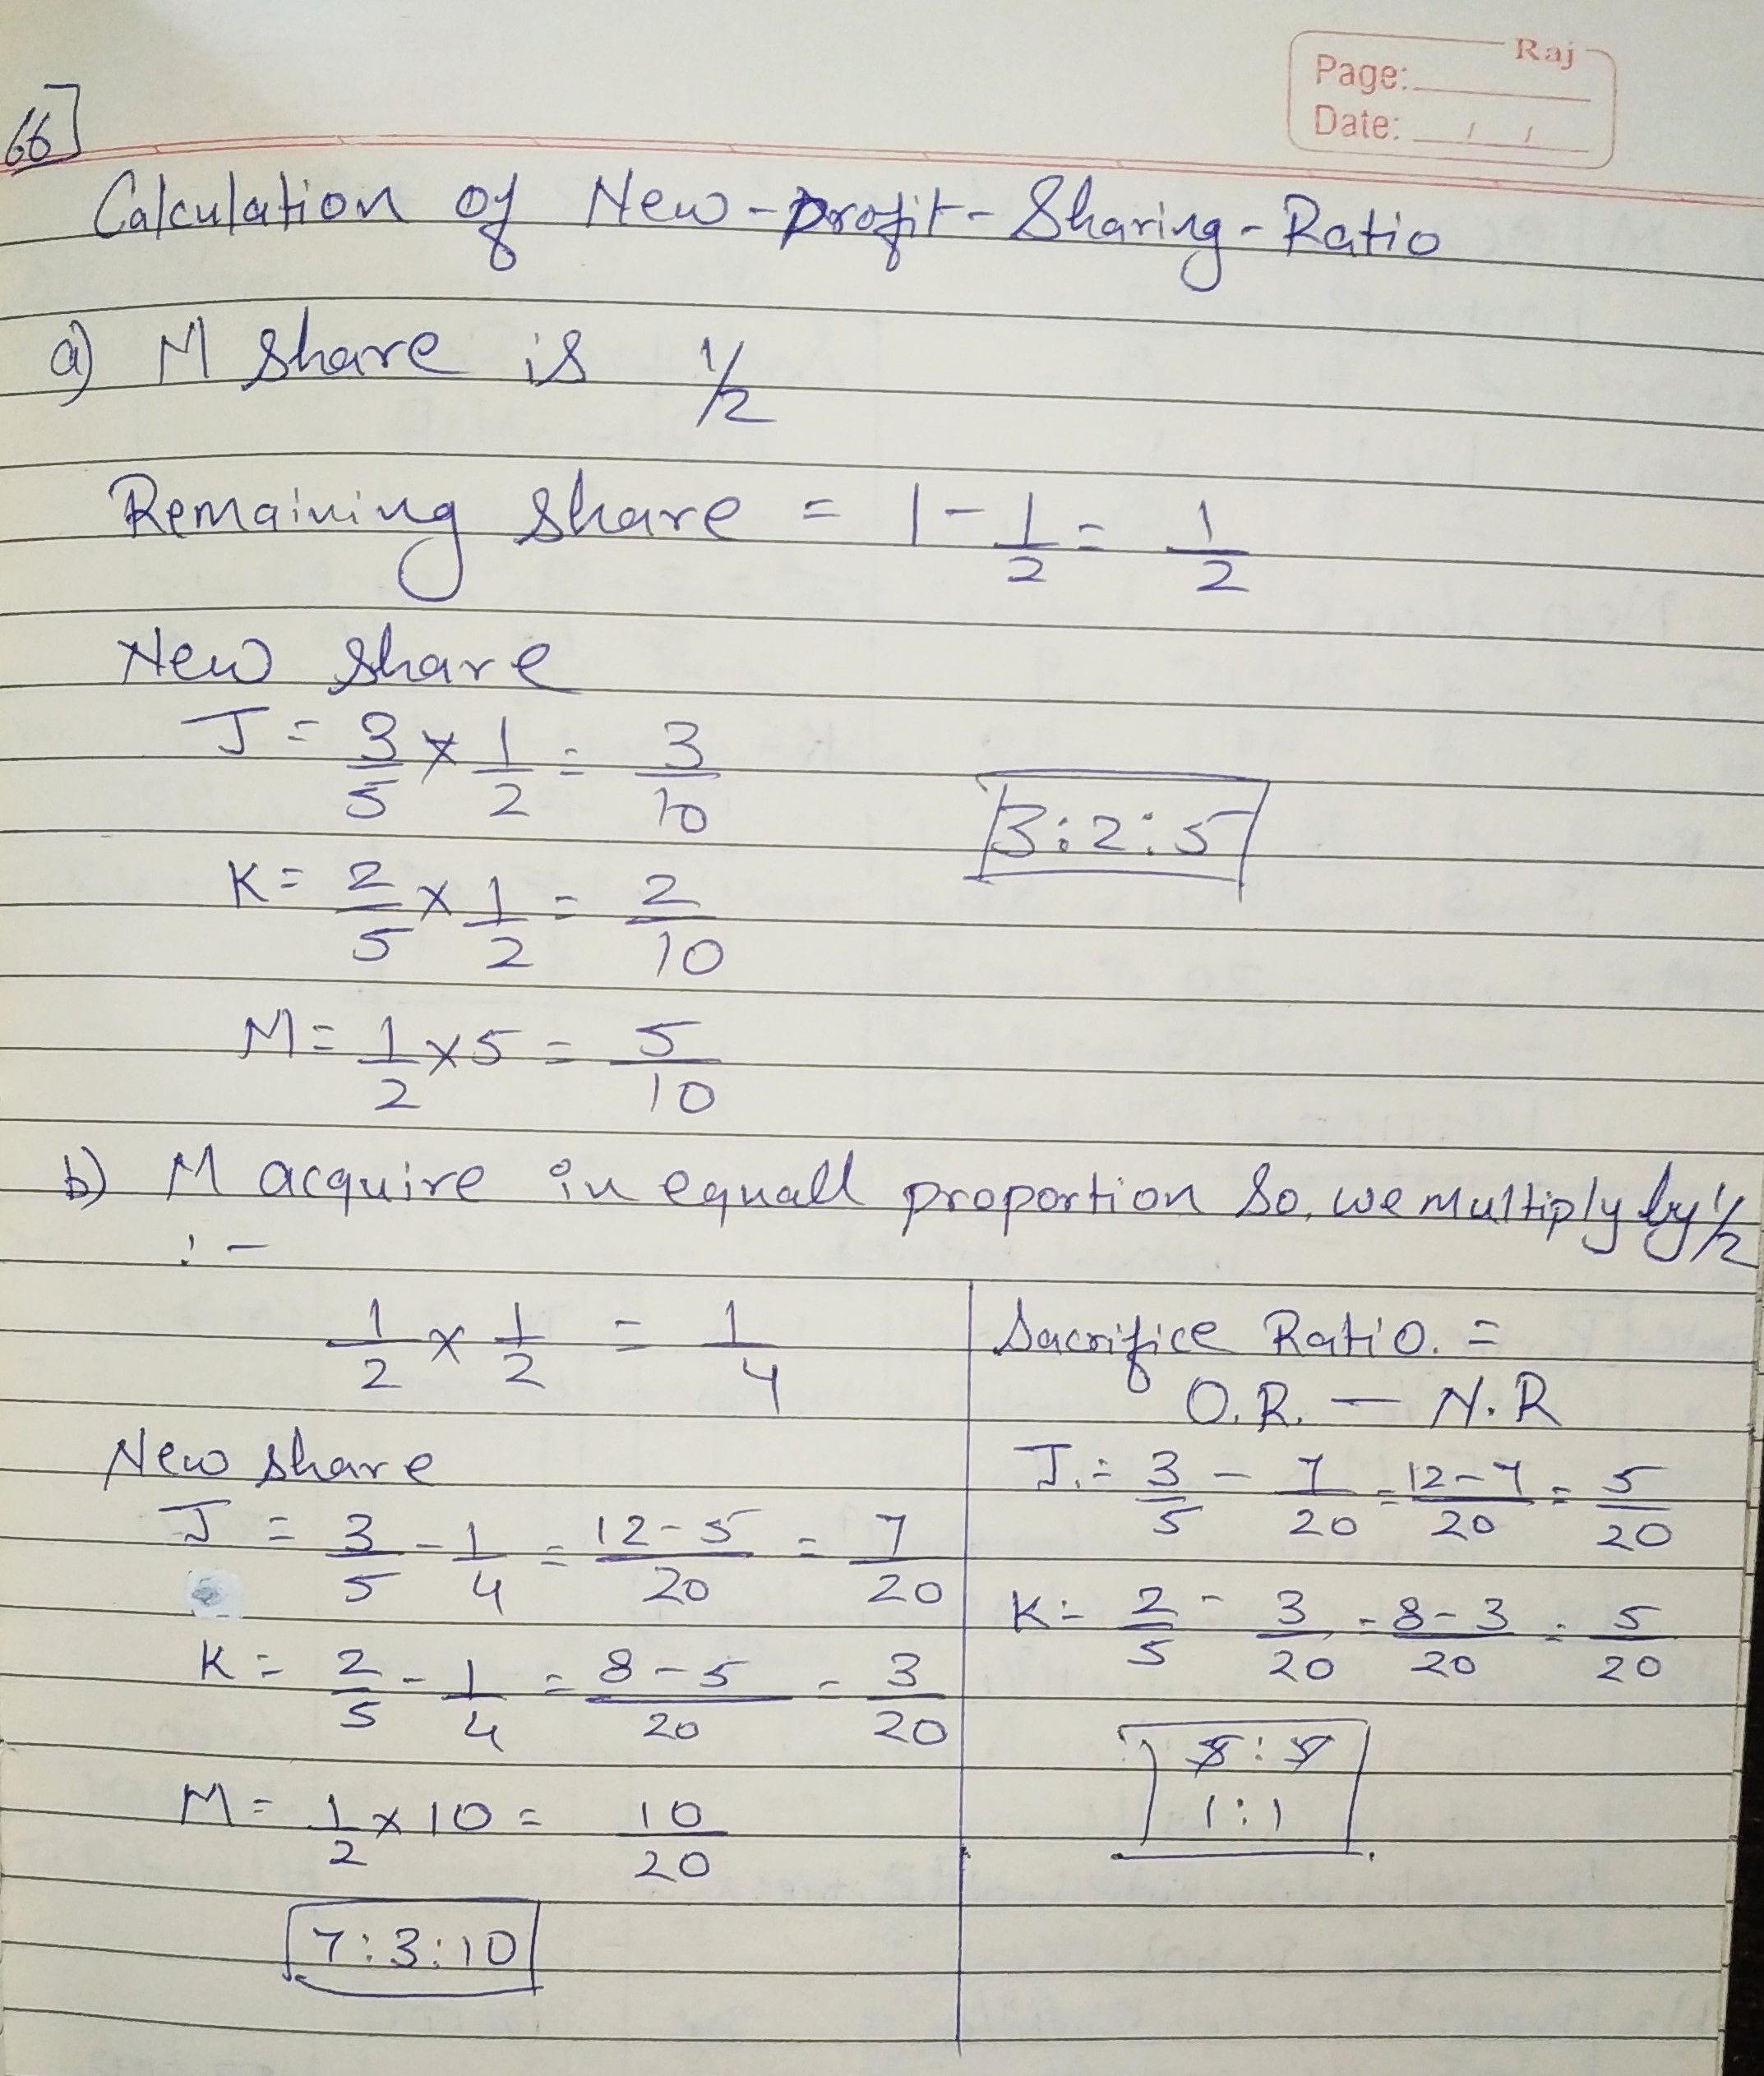 Raj
Page:
Date: / /
66]
Calculation of New-profit-Sharing-Ratio
a) M share is 1/2
Remaining share = 1 - 1/2 = 1/2
New share
J = 3/5 × 1/2 = 3/10
3:2:5
K = 2/5 × 1/2 = 2/10
M = 1/2 × 5 = 5/10
b) M acquire in equall proportion So, we multiply by 1/2
:-
1/2 × 1/2 = 1/4
New share
J = 3/5 - 1/4 = 12-5/20 = 7/20
K = 2/5 - 1/4 = 8-5/20 = 3/20
M = 1/2 × 10 = 10/20
7:3:10
Sacrifice Ratio. =
O.R. — N.R
J. = 3/5 - 7/20 = 12-7/20 = 5/20
K = 2/5 - 3/20 = 8-3/20 = 5/20
5:5
1:1